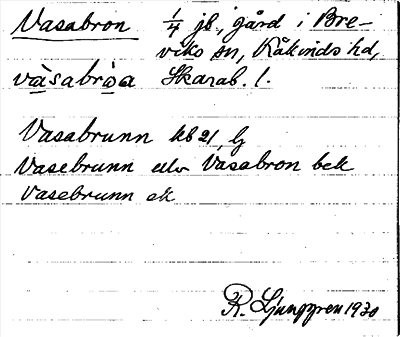 Vasabron ¼ jb, gård i Bre-
viks sn, Kåkinds hd,
vàsabròa Skarab. l.
Vasabrunn kb 21, lj
Vasebrunn elv Vasabron bek
Vasebrunn ek
R. Ljunggren 1930